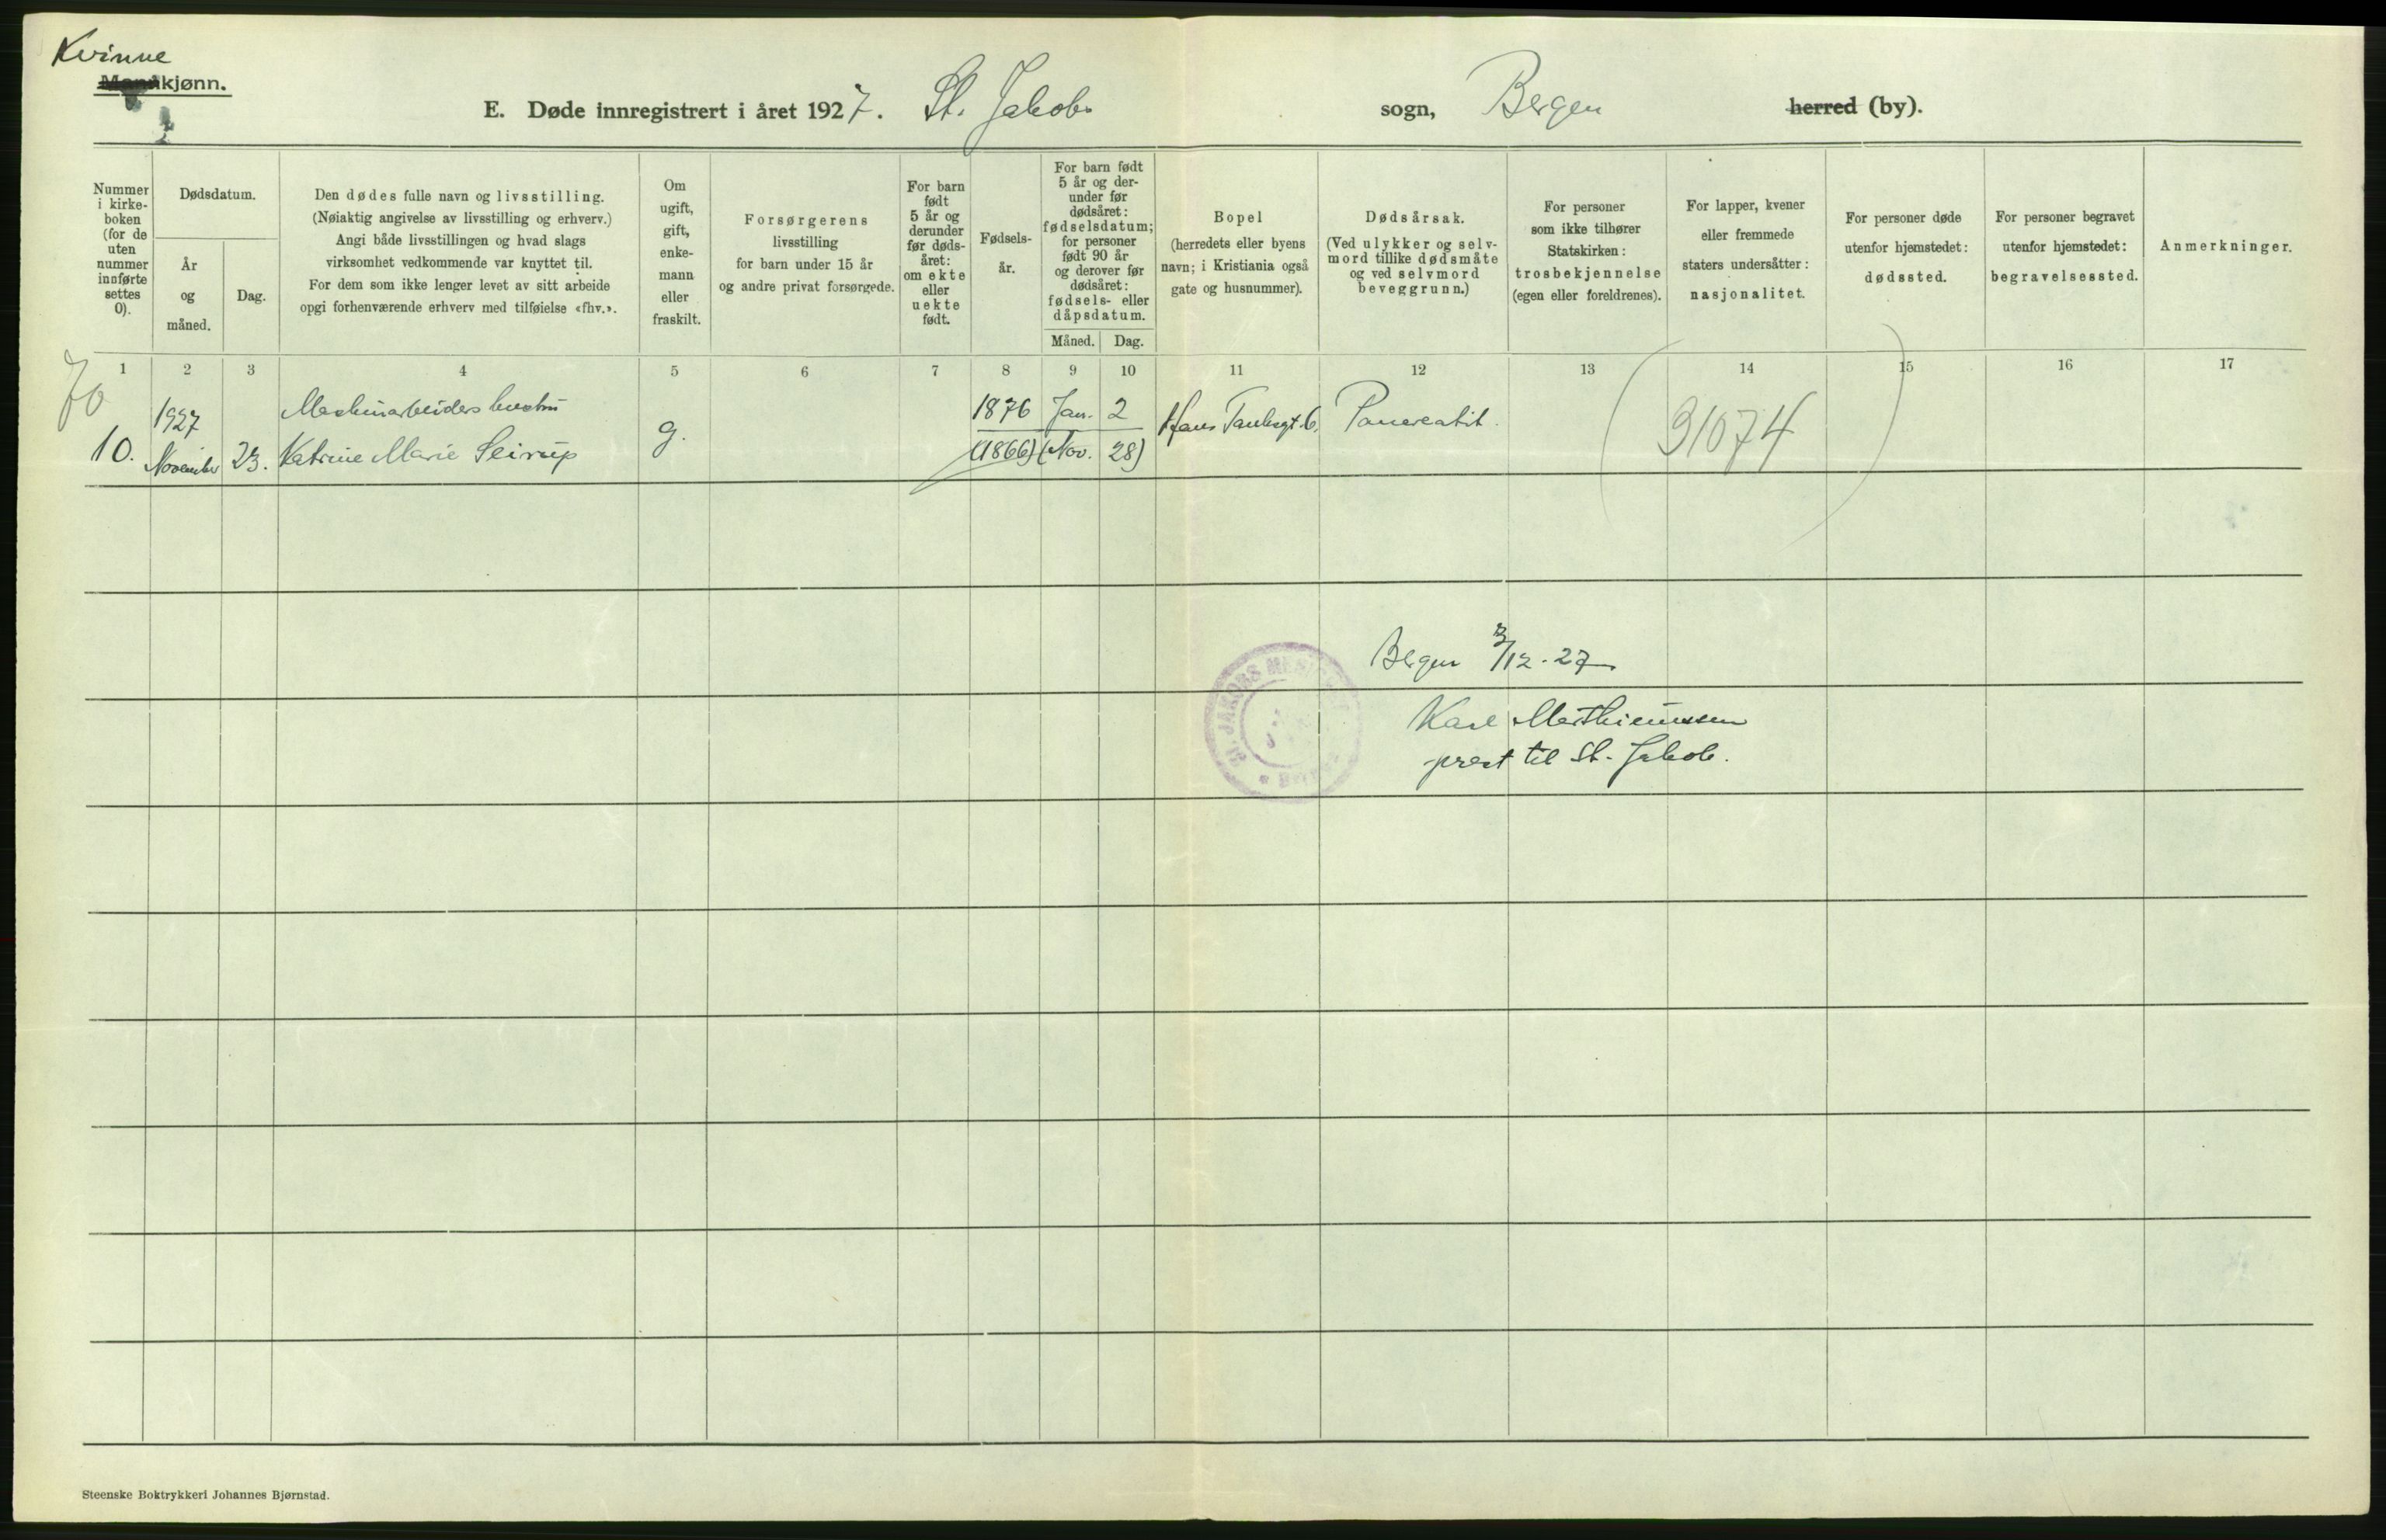 Kvinne
Mannkjønn.
E. Døde innregistrert i året 1927. St. Jakobs sogn, Bergen herred (by).
Nummer i kirke-boken (for de uten nummer innførte settes 0).
Dødsdatum.
År og måned.
Dag.
Den dødes fulle navn og livsstilling.
(Nøiaktig angivelse av livsstilling og erhverv.)
Angi både livsstillingen og hvad slags
virksomhet vedkommende var knyttet til.
For dem som ikke lenger levet av sitt arbeide
opgi forhenværende erhverv med tilføielse «fhv.».
Om ugift, gift, enke-mann eller fraskilt.
Forsørgerens
livsstilling
for barn under 15 år
og andre privat forsørgede.
For barn født 5 år og derunder før døds-året: om ekte eller uekte født.
Fødsels-år.
For barn født 5 år og der-under før dødsåret: fødselsdatum; for personer født 90 år og derover før dødsåret: fødsels- eller dåpsdatum.
Måned. Dag.
Bopel
(herredets eller byens
navn; i Kristiania også
gate og husnummer).
Dødsårsak.
(Ved ulykker og selv-
mord tillike dødsmåte
og ved selvmord
beveggrunn.)
For personer
som ikke tilhører
Statskirken:
trosbekjennelse
(egen eller foreldrenes).
For lapper, kvener
eller fremmede
staters undersåtter:
nasjonalitet.
For personer døde
utenfor hjemstedet:
dødssted.
For personer begravet
utenfor hjemstedet:
begravelsessted.
Anmerkninger.
1 2 3 4 5 6 7 8 9 10 11 12 13 14 15 16 17
70
1927 Maskinarbeiders hustru 1876 Jan. 2
10. November 23. Katrine Marie Seirup g. (1866) (Nov. 28) Hans Tanksgt. 6. Pancreatit. (31074)
Bergen /12-27
ST. JAKOBS
Karl Marthinussen
prest til St. Jakob.
Steenske Boktrykkeri Johannes Bjørnstad.